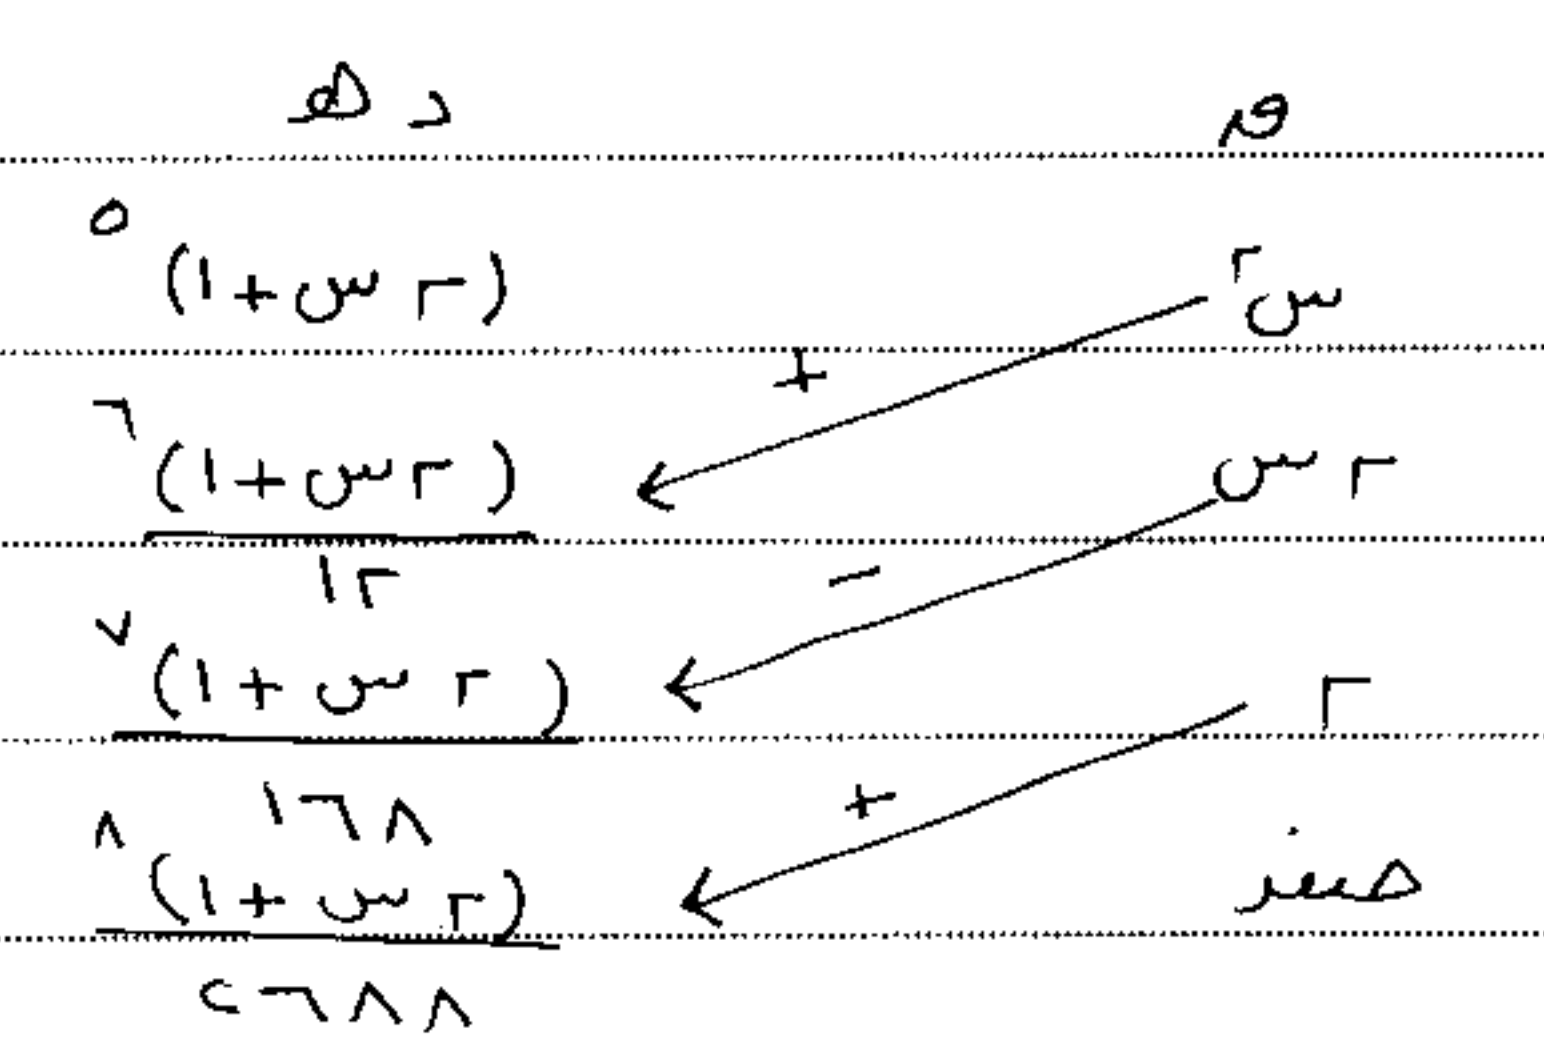 ق د هـ
س٢ (٢ س + ١)٥
+
٢ س (٢ س + ١)٦
١٢
−
٢ (٢ س + ١)٧
١٦٨
+
صفر (٢ س + ١)٨
٢٦٨٨